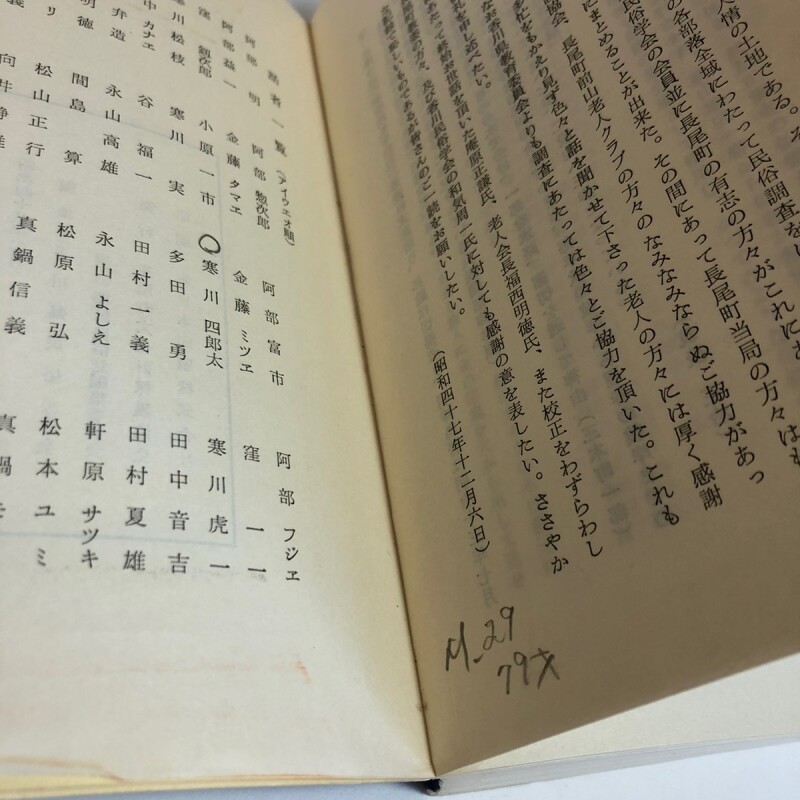 人情の土地である。そ
の各部落全域にわたって民俗調査をし
民俗学会の会員並に長尾町の有志の方々がこれにあ
にまとめることが出来た。その間にあって長尾町当局の方々はも
協会、長尾町前山老人クラブの方々のなみなみならぬご協力があっ
多忙をもかえり見ず色々と話を聞かせて下さった老人の方々には厚く感謝
なお香川県教育委員会よりも調査にあたっては色々とご協力を頂いた。これも
礼を申し述べたい。
あたって終始お世話を頂いた庵原正謙氏、老人会長福西明徳氏、また校正をわずらわし
の方々、及び香川民俗学会の和気周一氏に対しても感謝の意を表したい。ささやか
貧しいものであるが皆さんのご一読をお願いしたい。
（昭和四十七年十二月六日）
M.29
79才
話者一覧（アイウエオ順）
阿部明 阿部惣次郎 阿部富市 阿部フジエ
阿部益一 金藤タマエ 金藤ミツエ 窪一一
窪釼次郎 小原一市 寒川四郎太 寒川虎一
寒川松枝 寒川実 多田勇 田中音吉
中カナエ 谷福一 田村一義 田村夏雄
弁造 永山高雄 永山よしえ 軒原サツキ
明徳 間島算 松原弘 松本ユミ
リ 松山正行 真鍋信義 真鍋
義 向井静雄